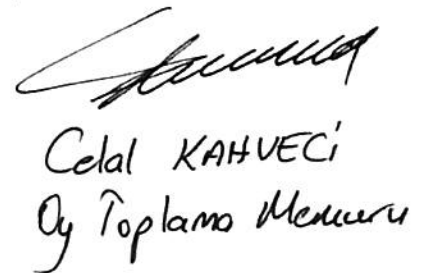 Celal KAHVECİ
Oy Toplama Memuru